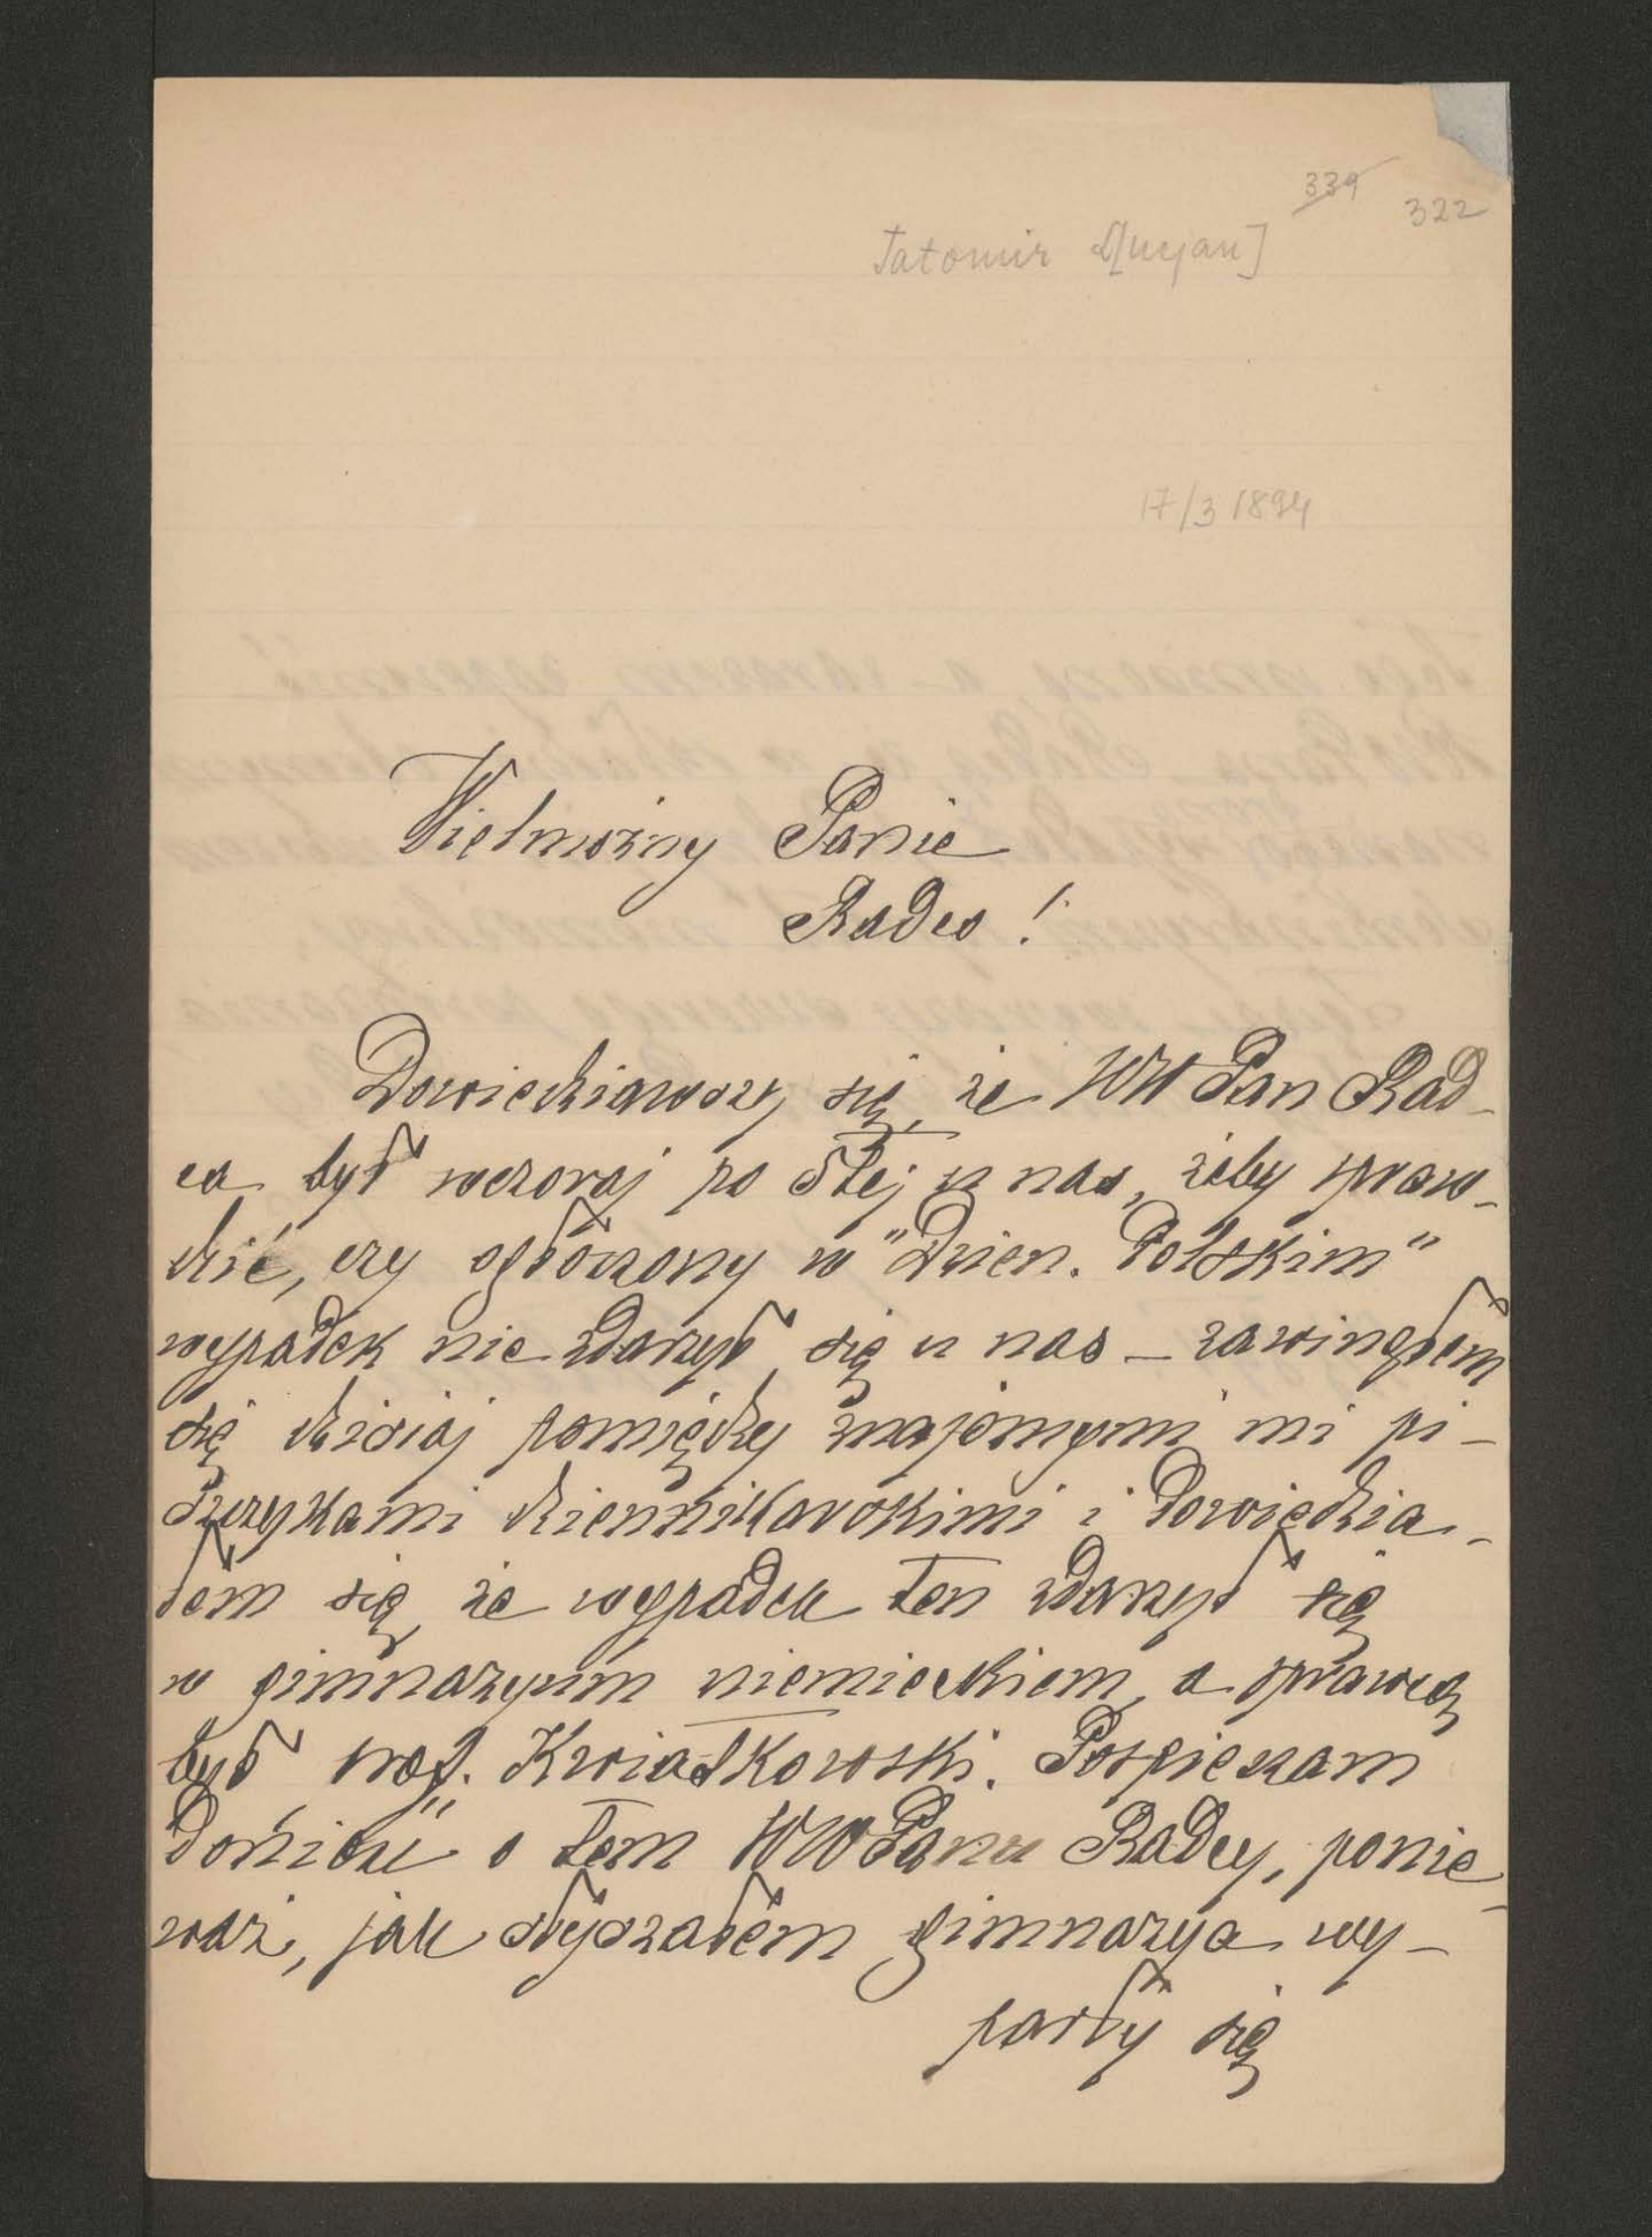 339 322
Tatomir Ł[ucjan]
17/3 1894
Wielmożny Panie
Radco !
Dowiedziawszy się, że WW Pan Rad-
ca był wczoraj po 5tej u nas, żeby spraw-
dzić, czy ogłoszony w "Dzien. Polskim"
wypadek nie zdarzył się u nas – zawinąłem
się dzisiaj pomiędzy znajomymi mi pi-
szczykami dziennikarskimi i dowiedzia-
łem się, że wypadek ten zdarzył się
w gimnazyum niemieckiem, a sprawcą
był prof. Kwiatkowski. Pospieszam
donieść o tem WWPanu Radcy, ponie-
waż, jak słyszałem gimnazya wy-
parły się